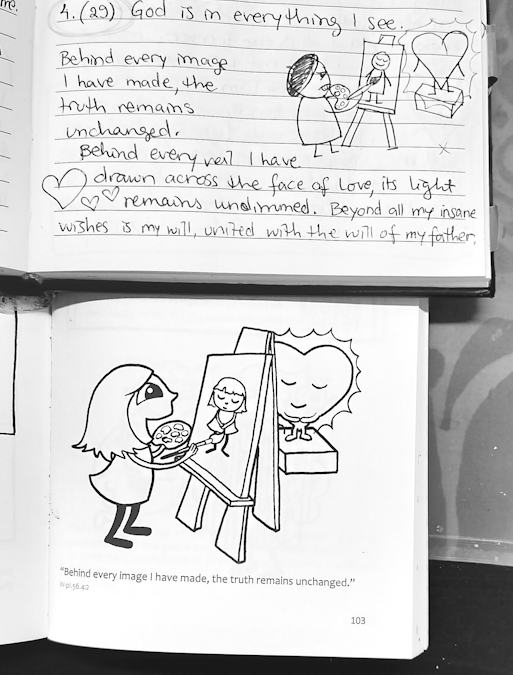 me.
4. (29) God is in everything I see.
Behind every image
I have made, the
truth remains
unchanged.
Behind every veil I have
drawn across the face of Love, its light
remains undimmed. Beyond all my insane
wishes is my will, united with the will of my father.
"Behind every image I have made, the truth remains unchanged."
W-pI.56.4:2
103